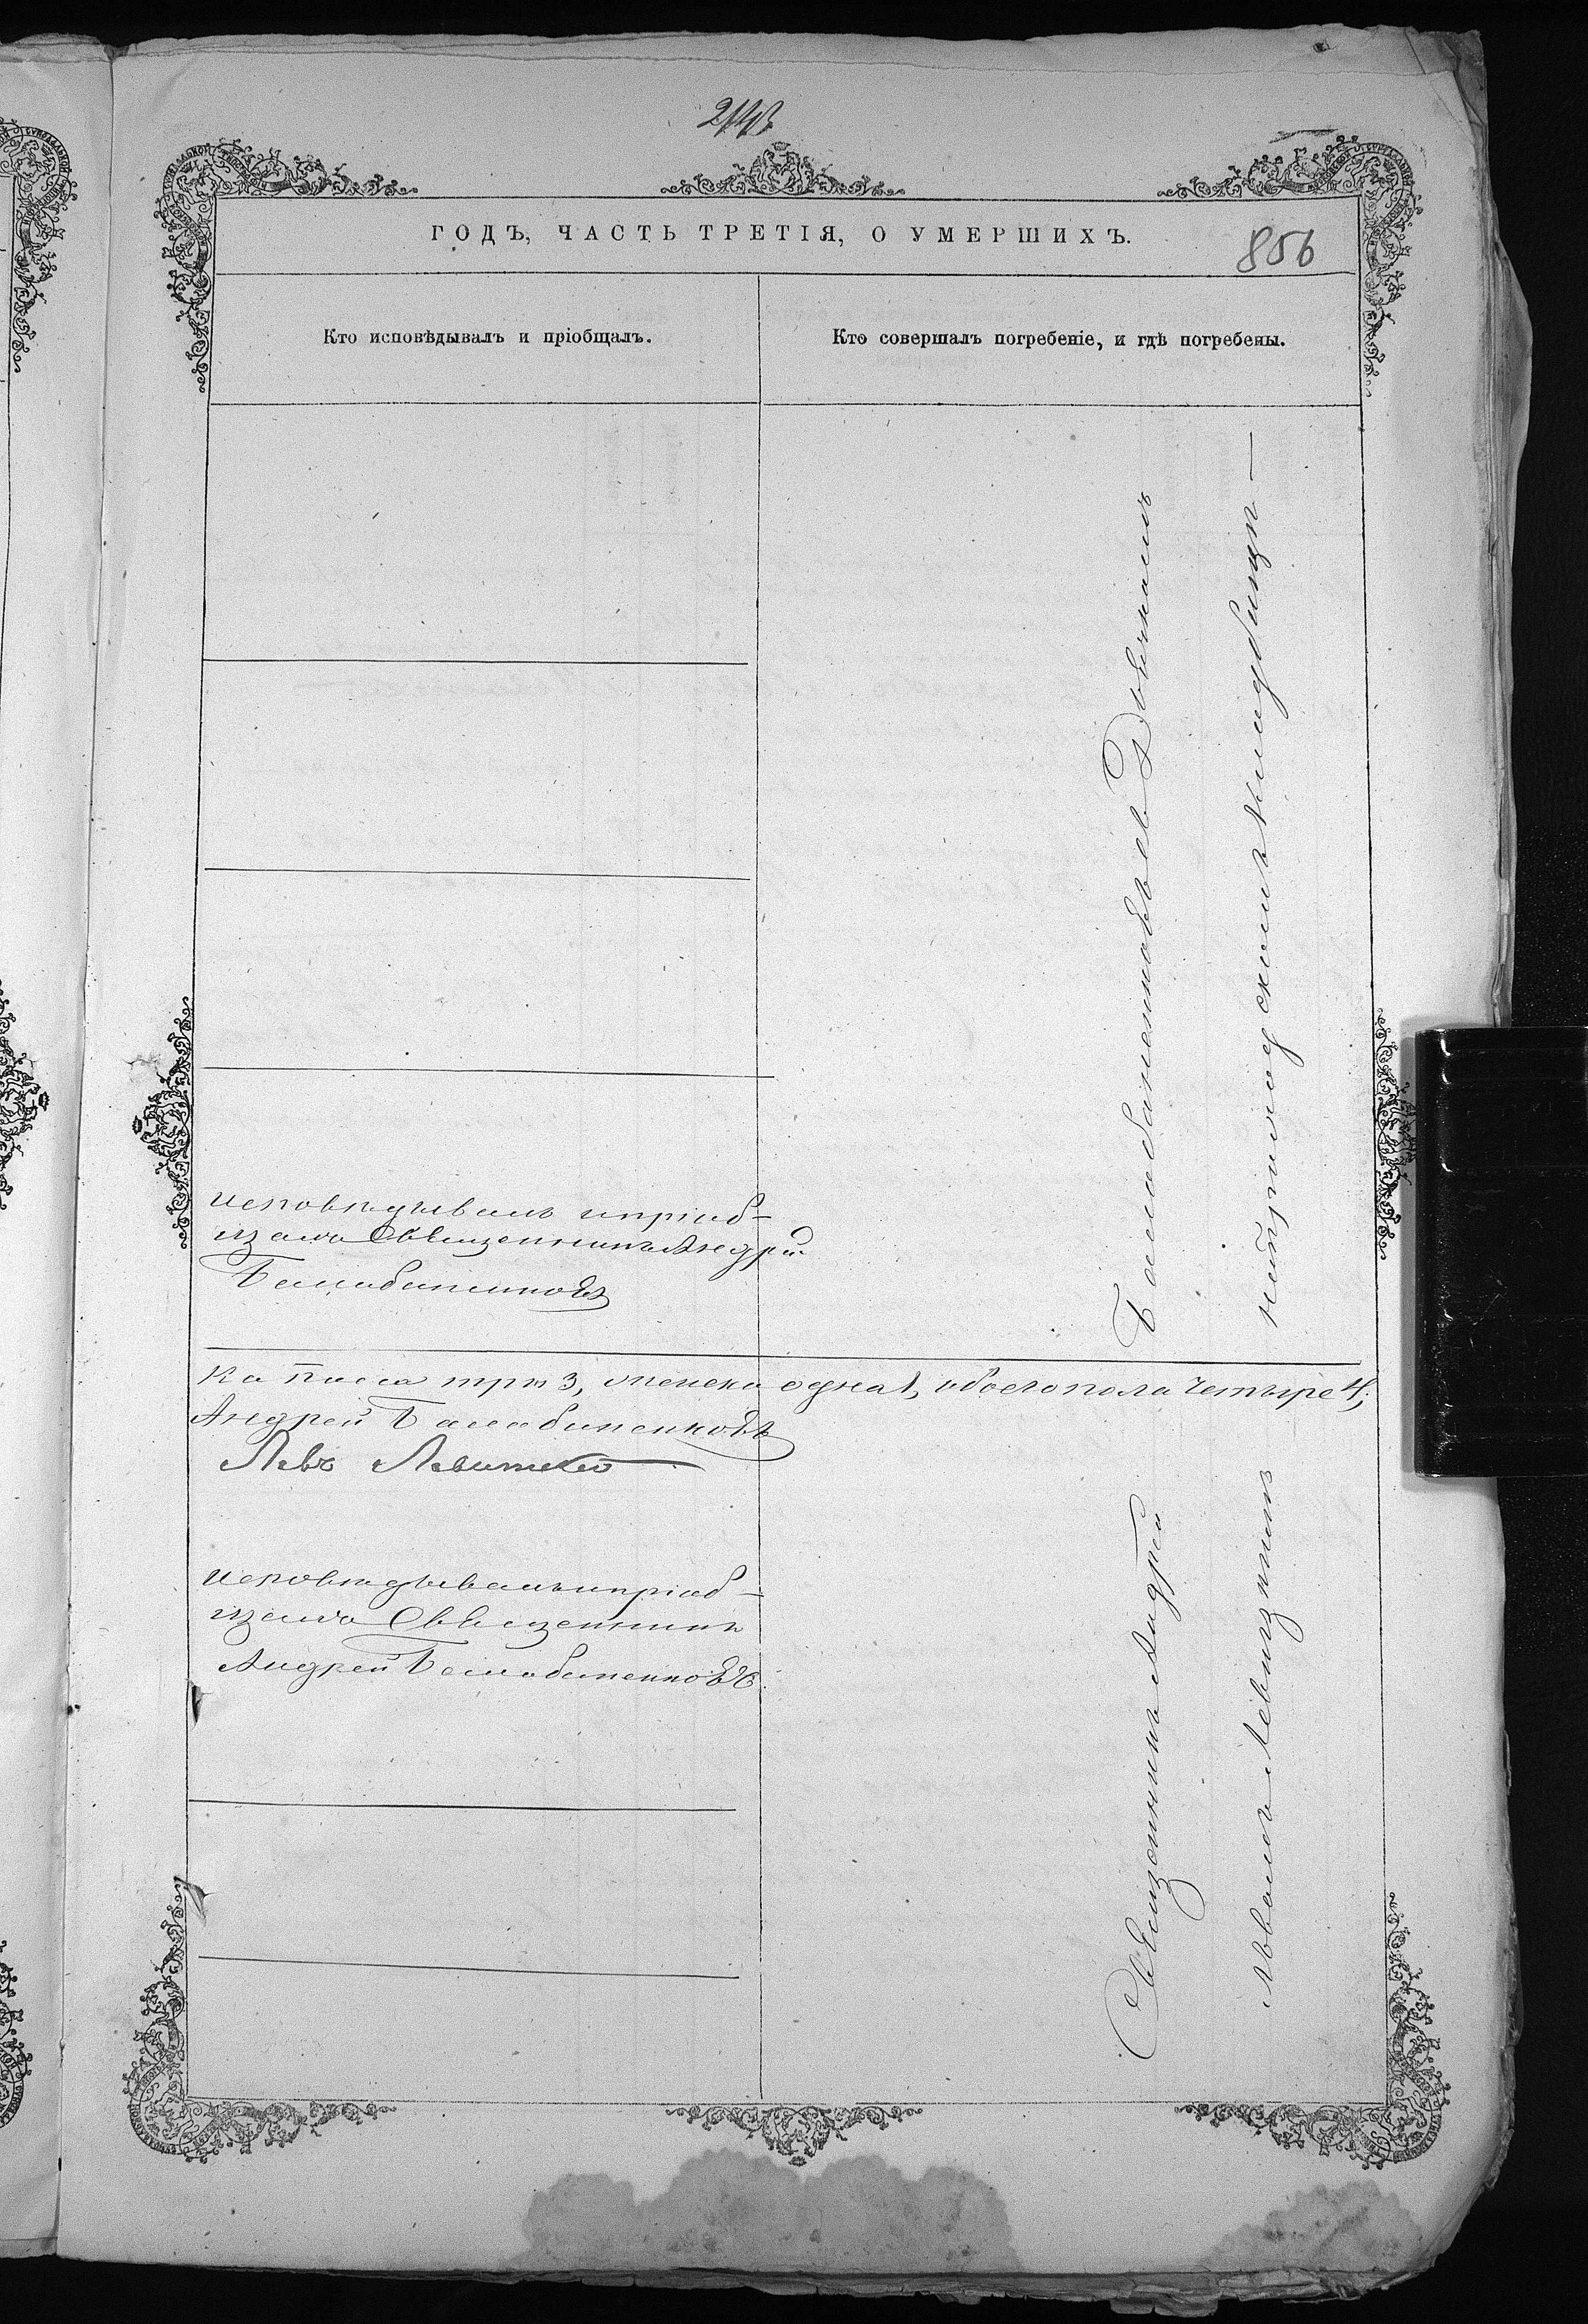 ГОДЪ, ЧАСТЬ ТРЕТІЯ, О УМЕРШИХЪ.
856
Кто исповѣдывалъ и пріобщалъ.
Кто совершалъ погребеніе, и гдѣ погребены.
исповѣдывалъ и пріоб-
щалъ Священникъ Андрей
Балабаненковъ
Балабаненковъ съ Дьячкомъ
на приходскомъ кладбищѣ —
ка пола три 3, женска одна 1, обоего пола четыре 4,
Андрей Балабаненковъ
Левъ Левитскій
исповѣдывалъ и пріоб-
щалъ Священникъ
Андрей Балабаненковъ
Священникъ Андрей
Львомъ Левицкимъ